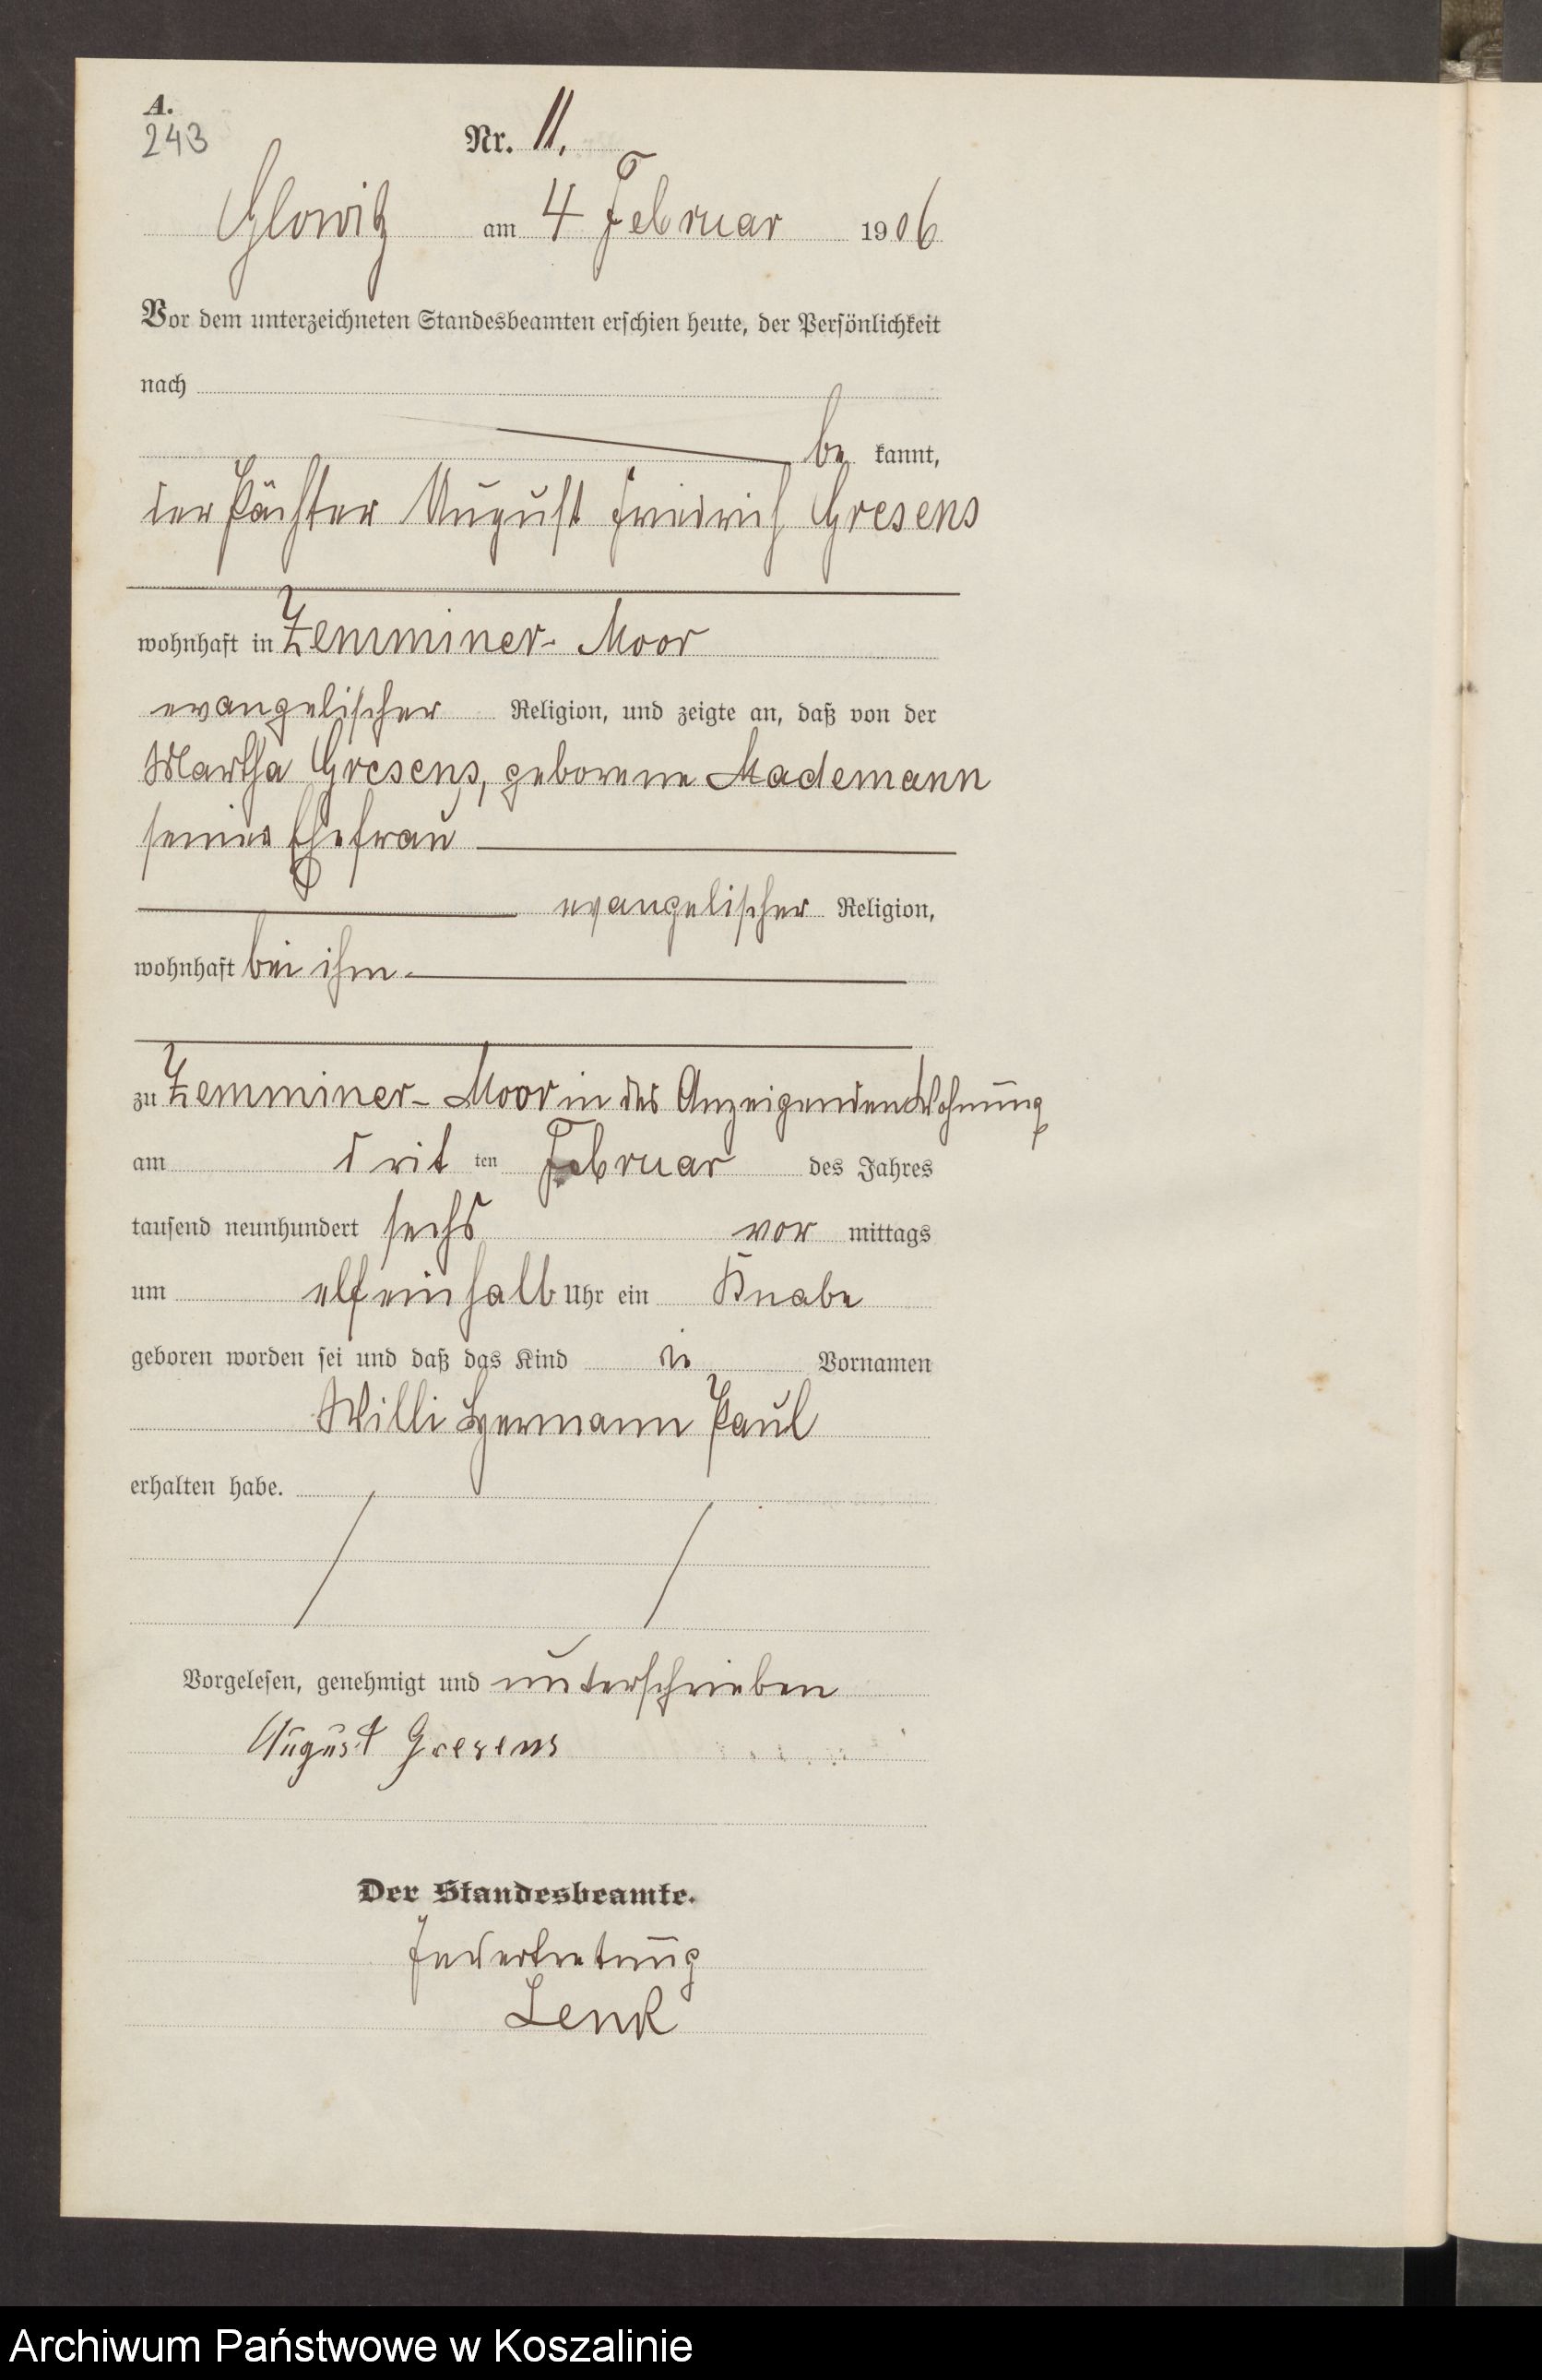 A.
243
Nr. 11.
Glowitz am 4 Februar 1906
Vor dem unterzeichneten Standesbeamten erschien heute, der Persönlichkeit
nach
be kannt,
der Pächter August Friedrich Gresens
wohnhaft in Zemminer-Moor
evangelischer Religion, und zeigte an, daß von der
Martha Gresens, geborene Mademann
seiner Ehefrau
evangelischer Religion,
wohnhaft bei ihm
zu Zemminer-Moor in des Anzeigenden Wohnung
am dritten Februar des Jahres
tausend neunhundert sechs vor mittags
um elfeinhalb Uhr ein Knabe
geboren worden sei und daß das Kind die Vornamen
Willi Hermann Paul
erhalten habe.
Vorgelesen, genehmigt und unterschrieben
August Gresens
Der Standesbeamte.
In Vertretung
Lenk
Archiwum Państwowe w Koszalinie